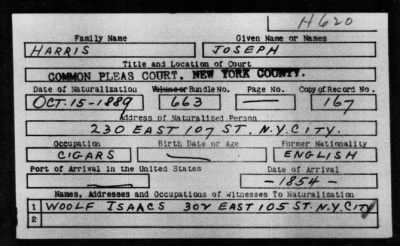 H620
Family Name Given Name or Names
HARRIS JOSEPH
Title and Location of Court
COMMON PLEAS COURT, NEW YORK COUNTY.
Date of Naturalization Volume or Bundle No. Page No. Copy of Record No.
OCT. 15-1889 663 — 167
Address of Naturalized Person
230 EAST 107 ST. N.Y. CITY.
Occupation Birth Date or Age Former Nationality
CIGARS — ENGLISH
Port of Arrival in the United States Date of Arrival
— -1854-
Names, Addresses and Occupations of Witnesses To Naturalization
1 WOOLF ISAACS 302 EAST 105 ST. N.Y. CITY
2